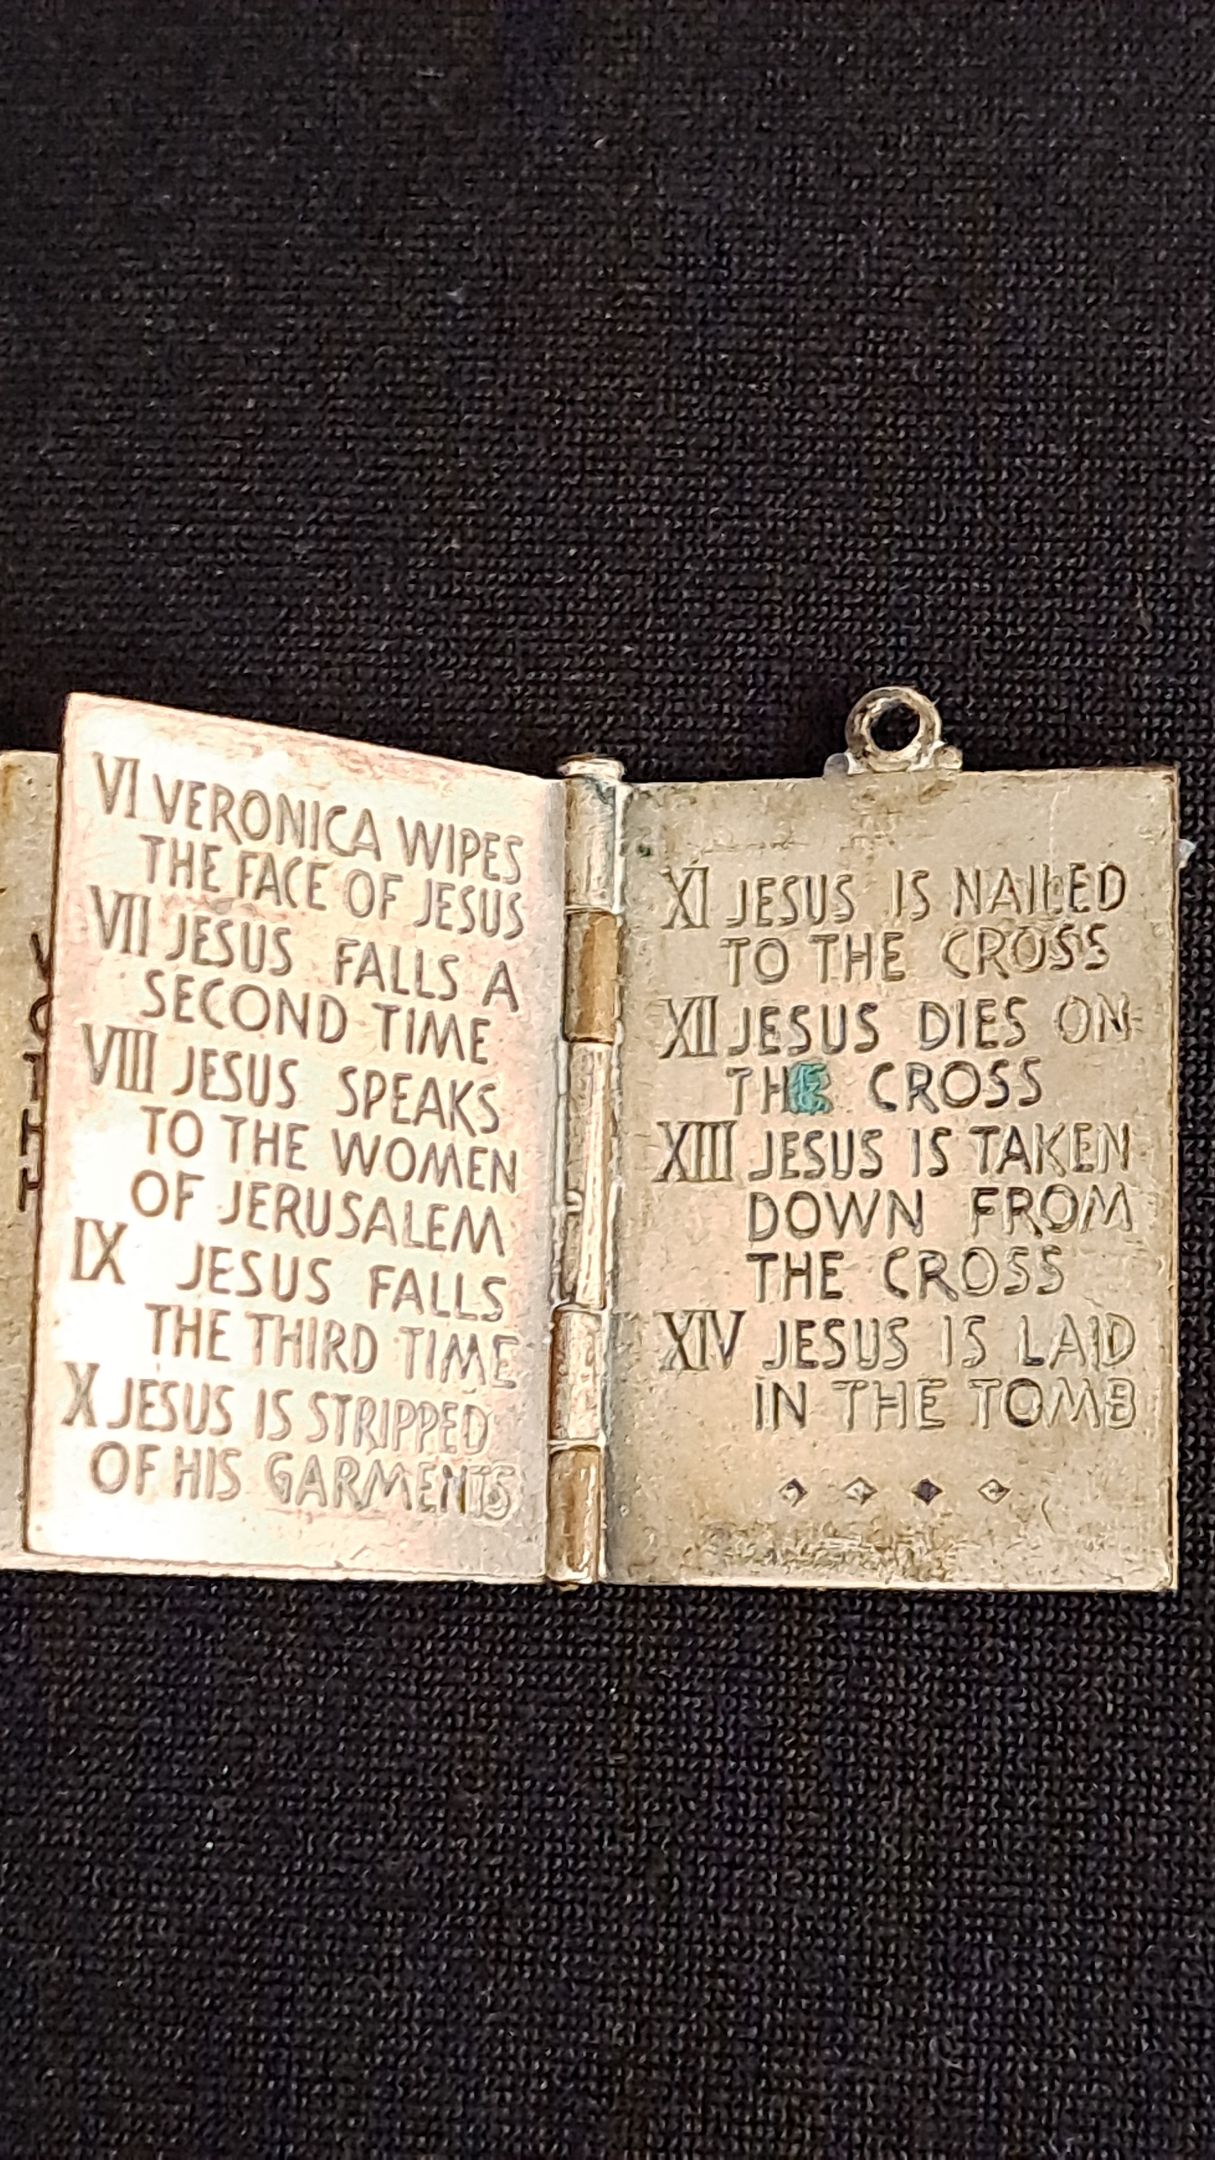 VI VERONICA WIPES
THE FACE OF JESUS
VII JESUS FALLS A
SECOND TIME
VIII JESUS SPEAKS
TO THE WOMEN
OF JERUSALEM
IX JESUS FALLS
THE THIRD TIME
X JESUS IS STRIPPED
OF HIS GARMENTS
XI JESUS IS NAILED
TO THE CROSS
XII JESUS DIES ON
THE CROSS
XIII JESUS IS TAKEN
DOWN FROM
THE CROSS
XIV JESUS IS LAID
IN THE TOMB